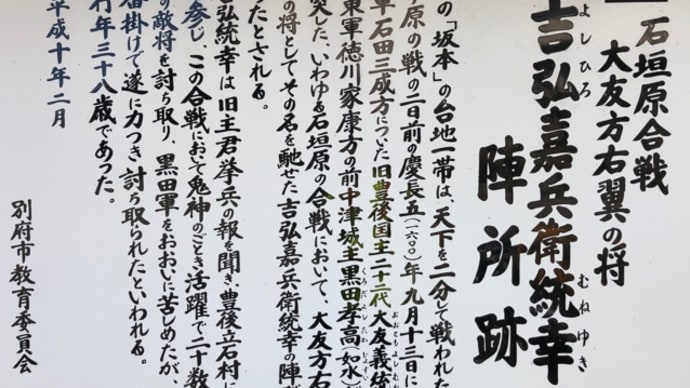 石垣原合戦
大友方右翼の将
吉弘嘉兵衛統幸
よしひろ
むねゆき
陣所跡
の「坂本」の台地一帯は、天下を二分して戦われた
原の戦の二日前の慶長五(一六〇〇)年九月十三日に
石田三成方についた旧豊後国主二十二代大友義統
東軍徳川家康方の前中津城主黒田孝高(如水)
突した、いわゆる石垣原の合戦において、大友方右
の将としてその名を馳せた吉弘嘉兵衛統幸の陣
ったとされる。
弘統幸は旧主君挙兵の報を聞き、豊後立石村に
参じ、この合戦において鬼神のごとき活躍で二十数
の敵将を討ち取り、黒田軍をおおいに苦しめたが、
番掛けで遂に力つき討ち取られたといわれる。
行年三十八歳であった。
平成十年二月
別府市教育委員会